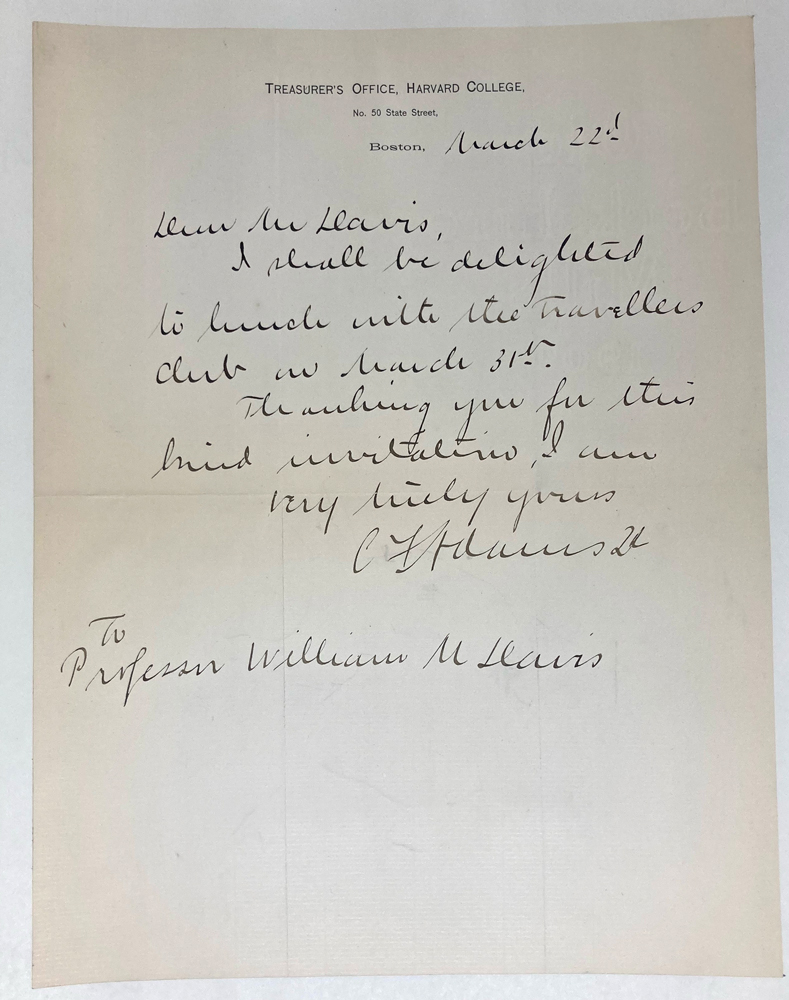 TREASURER'S OFFICE, HARVARD COLLEGE,
No. 50 State Street,
Boston, March 22d
Dear Mr Davis,
I shall be delighted
to lunch with the Travellers
Club on March 31st.
Thanking you for this
kind invitation, I am
very truly yours
C F Adams 2d
To
Professor William M Davis